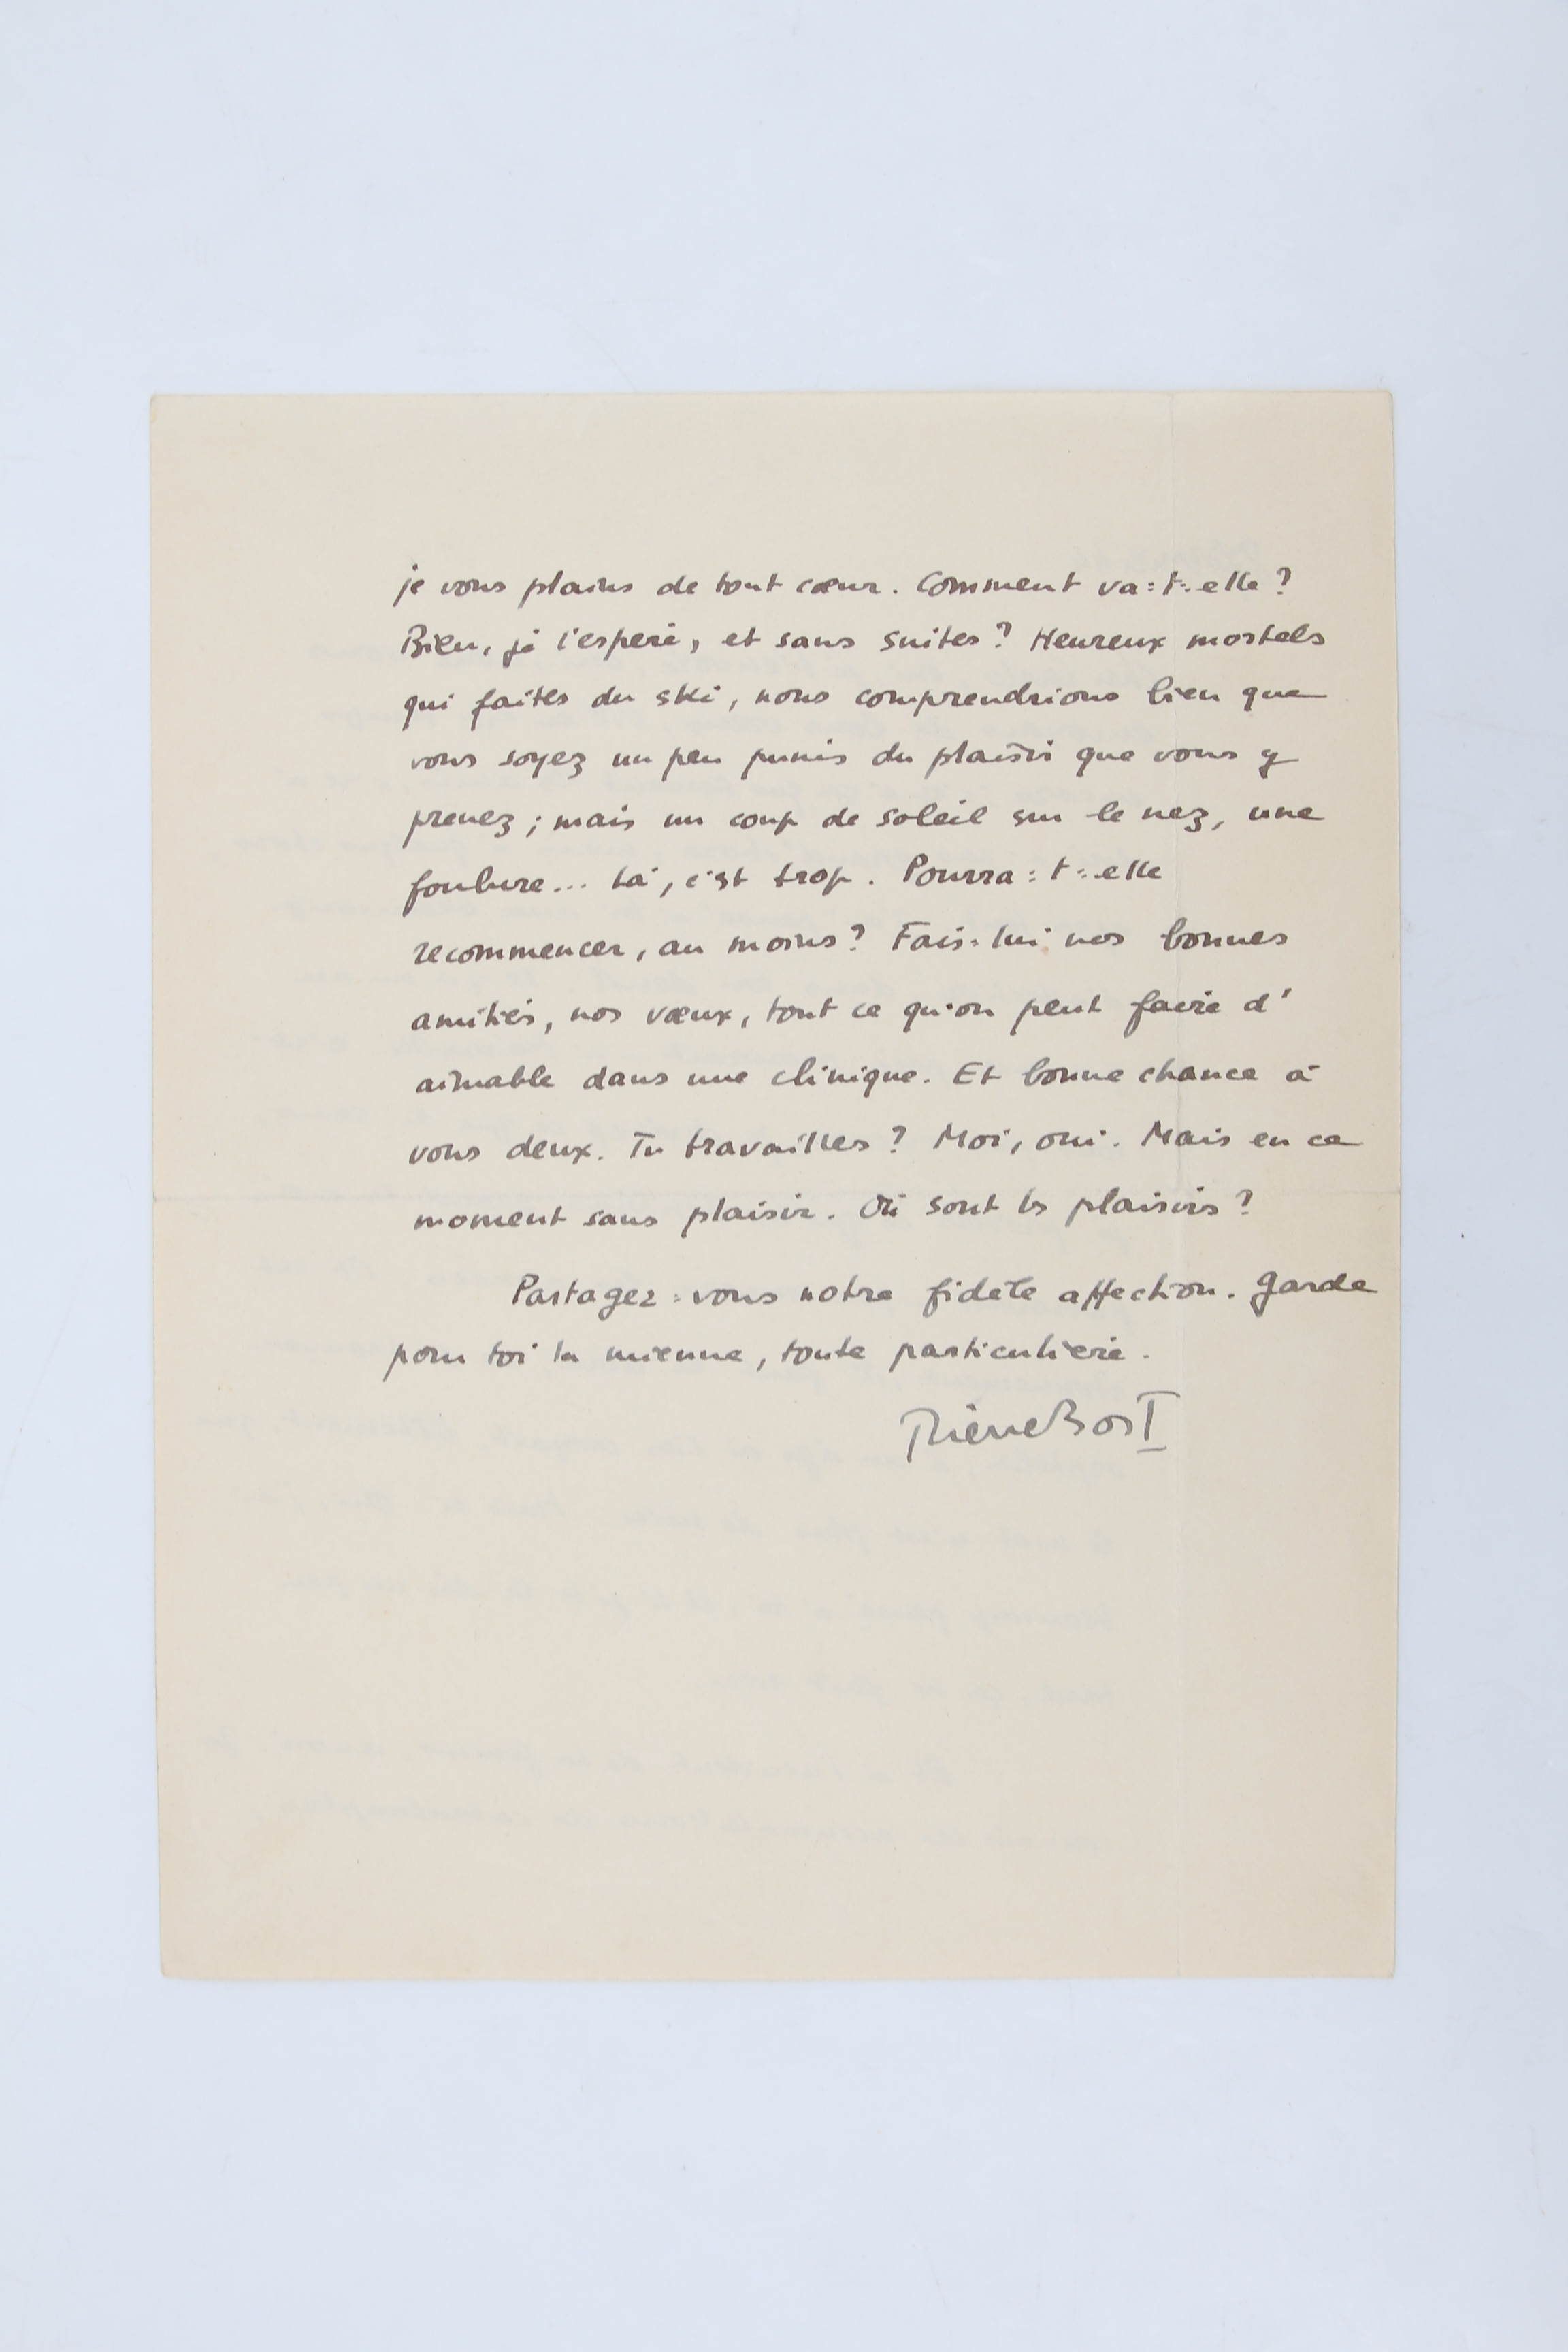 je vous plains de tout cœur. Comment va=t=elle ?
Bien, je l'espère, et sans suites ? Heureux mortels
qui faites du ski, nous comprendrions bien que
vous soyez un peu punis du plaisir que vous y
prenez ; mais un coup de soleil sur le nez, une
foulure... là, c'est trop. Pourra=t=elle
recommencer, au moins ? Fais=lui nos bonnes
amitiés, nos vœux, tout ce qu'on peut faire d'
aimable dans une clinique. Et bonne chance à
vous deux. Tu travailles ? Moi, oui. Mais en ce
moment sans plaisir. Où sont les plaisirs ?
Partagez=vous notre fidèle affection. Garde
pour toi la mienne, toute particulière.
Pierre Bost